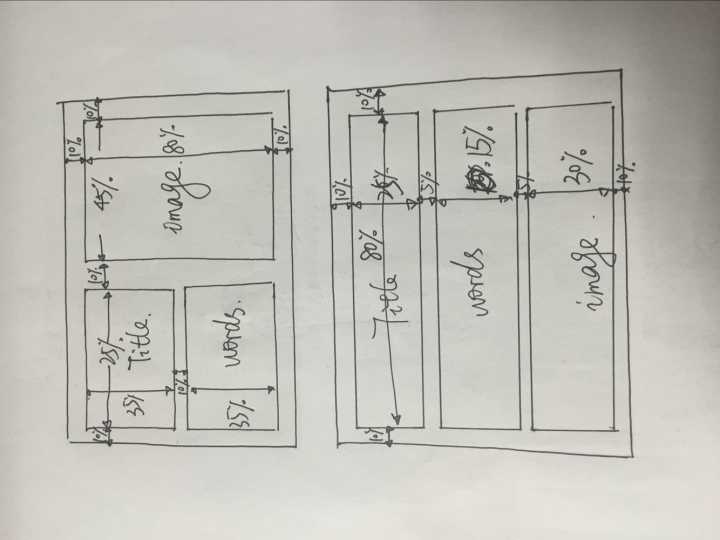 10%
10% 25% 10% 45% 10%
35% Title.
image. 80%
10%
35% words.
10%
10%
10% Title 80% 10%
5%
words 15%
5%
image. 30%
10%